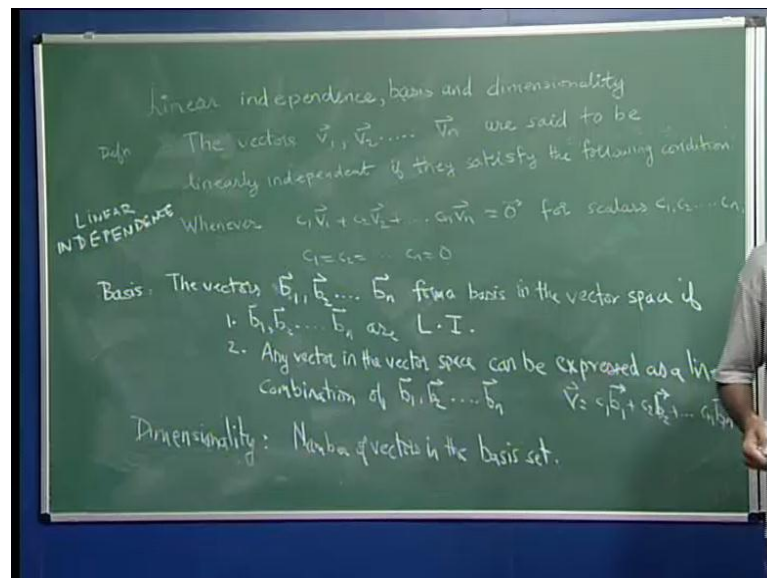 Linear independence, basis and dimensionality
Defn The vectors v⃗₁, v⃗₂ ..... v⃗n are said to be
linearly independent if they satisfy the following condition
LINEAR
INDEPENDENCE
Whenever c₁v⃗₁ + c₂v⃗₂ + ... cnv⃗n = 0⃗ for scalars c₁, c₂ ... cn,
c₁ = c₂ = ... cn = 0
Basis: The vectors b⃗₁, b⃗₂ .... b⃗n form a basis in the vector space if
1. b⃗₁, b⃗₂ .... b⃗n are L.I.
2. Any vector in the vector space can be expressed as a lin
combination of b⃗₁, b⃗₂ .... b⃗n v⃗ = c₁b⃗₁ + c₂b⃗₂ + ... cnb⃗n
Dimensionality: Number of vectors in the basis set.